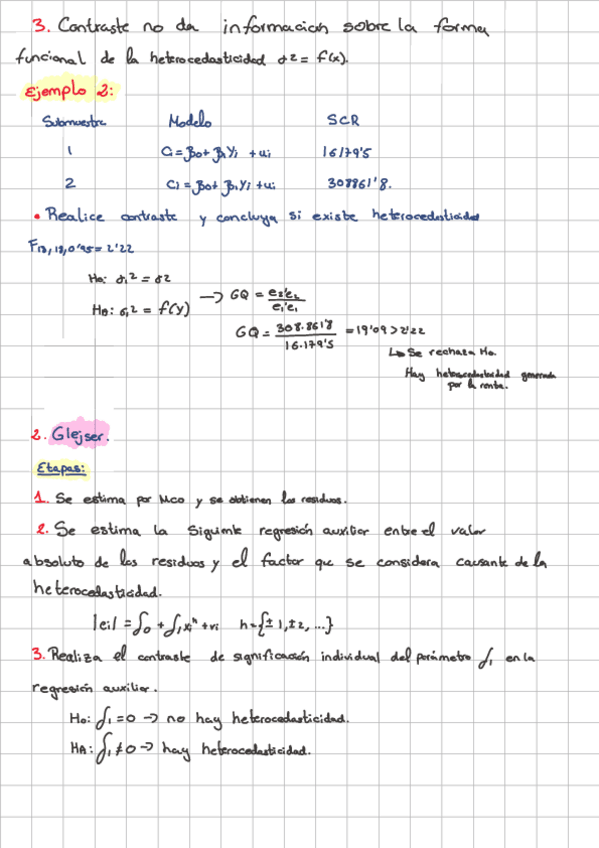 3. Contraste no da información sobre la forma
funcional de la heterocedasticidad σ² = f(x).
Ejemplo 2:
Submuestra Modelo SCR
1 Ci = β0 + β1Yi + ui 16179'5
2 Ci = β0 + β1Yi + ui 308861'8.
• Realice contraste y concluya si existe heterocedasticidad
F13,13,0'95 = 2'22
H0: σi² = σ2
HA: σi² = f(Y)
→ GQ = e2'e2 / e1'e1
GQ = 308.861'8 / 16.179'5 = 19'09 > 2'22
↳ Se rechaza H0.
Hay heterocedasticidad generada
por la renta.
2. Glejser.
Etapas:
1. Se estima por MCO y se obtienen los residuos.
2. Se estima la siguiente regresión auxiliar entre el valor
absoluto de los residuos y el factor que se considera causante de la
heterocedasticidad.
|ei| = δ0 + δ1xi^h + vi h = {±1, ±2, ...}
3. Realiza el contraste de significación individual del parámetro δ1 en la
regresión auxiliar.
H0: δ1 = 0 → no hay heterocedasticidad.
HA: δ1 ≠ 0 → hay heterocedasticidad.